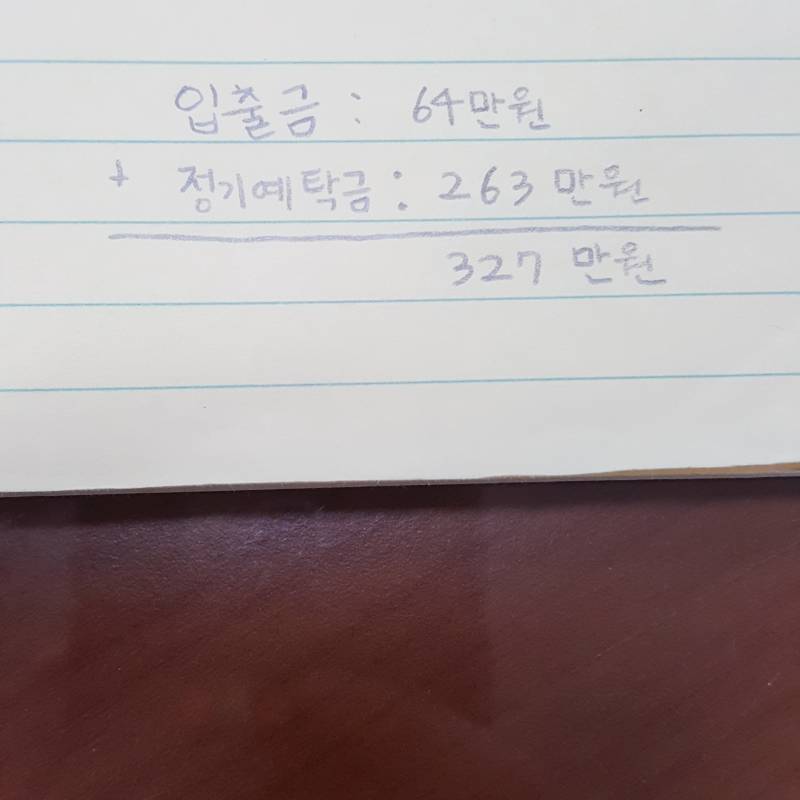 입출금 : 64만원
+ 정기예탁금 : 263만원
327만원